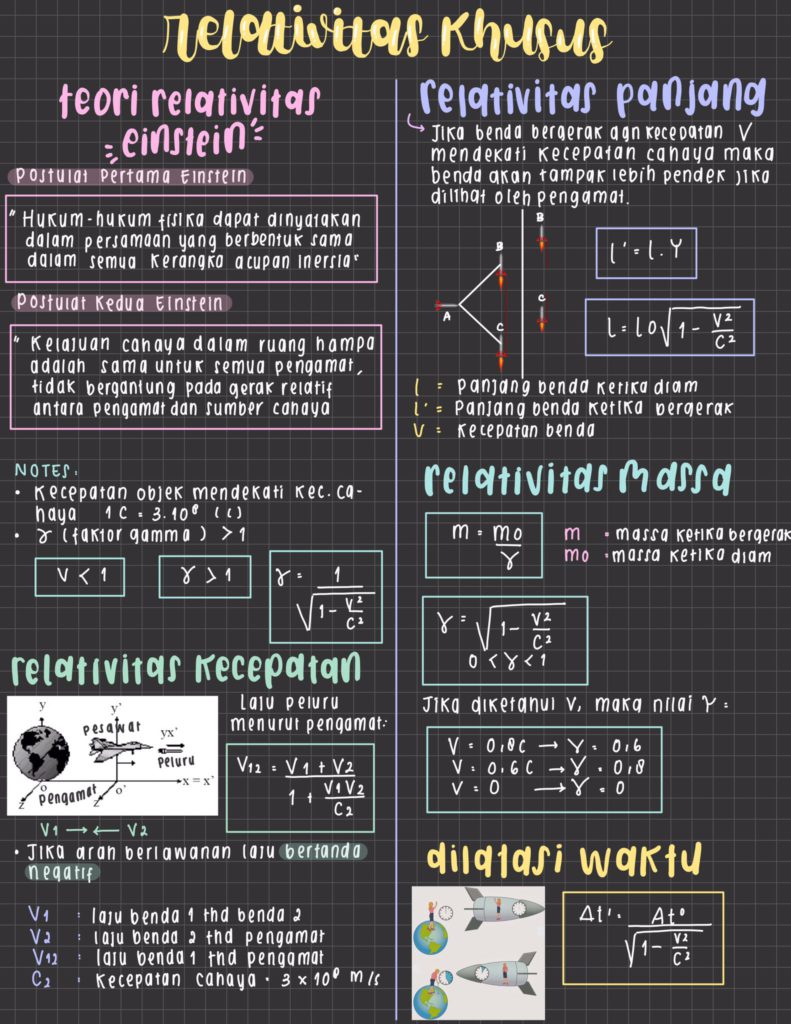 Relativitas Khusus
teori relativitas
einstein
Postulat Pertama Einstein
"Hukum-hukum fisika dapat dinyatakan
dalam persamaan yang berbentuk sama
dalam semua kerangka acupan inersia"
Postulat Kedua Einstein
"Kelajuan cahaya dalam ruang hampa
adalah sama untuk semua pengamat,
tidak bergantung pada gerak relatif
antara pengamat dan sumber cahaya
NOTES:
• Kecepatan objek mendekati kec. ca-
haya 1 C = 3.10⁸ (c)
• γ (faktor gamma) > 1
V < 1
γ > 1
γ = 1 / √(1 - V²/C²)
relativitas kecepatan
y
y'
Pesawat
yx'
Peluru
x = x'
o
o'
Pengamat
z
z'
V1 → ← V2
Laju peluru
menurut pengamat:
V12 = V1 + V2 / 1 + V1V2/C2
• Jika arah berlawanan laju bertanda
negatif
V1 : laju benda 1 thd benda 2
V2 : laju benda 2 thd pengamat
V12 : laju benda 1 thd pengamat
C2 : Kecepatan cahaya = 3 x 10⁸ m/s
relativitas panjang
Jika benda bergerak dgn kecepatan V
mendekati kecepatan cahaya maka
benda akan tampak lebih pendek jika
dilihat oleh pengamat.
B
B
A
C
C
l' = l . γ
l = l0 √(1 - V²/C²)
l = Panjang benda ketika diam
l' = Panjang benda ketika bergerak
V = Kecepatan benda
relativitas Massa
m = mo / γ
m = massa ketika bergerak
mo = massa ketika diam
γ = √(1 - V2/C²)
0 < γ < 1
Jika diketahui V, maka nilai γ =
V = 0,8C → γ = 0,6
V = 0,6C → γ = 0,8
V = 0 → γ = 0
dilatasi waktu
Δt' = Δt° / √(1 - V²/C²)